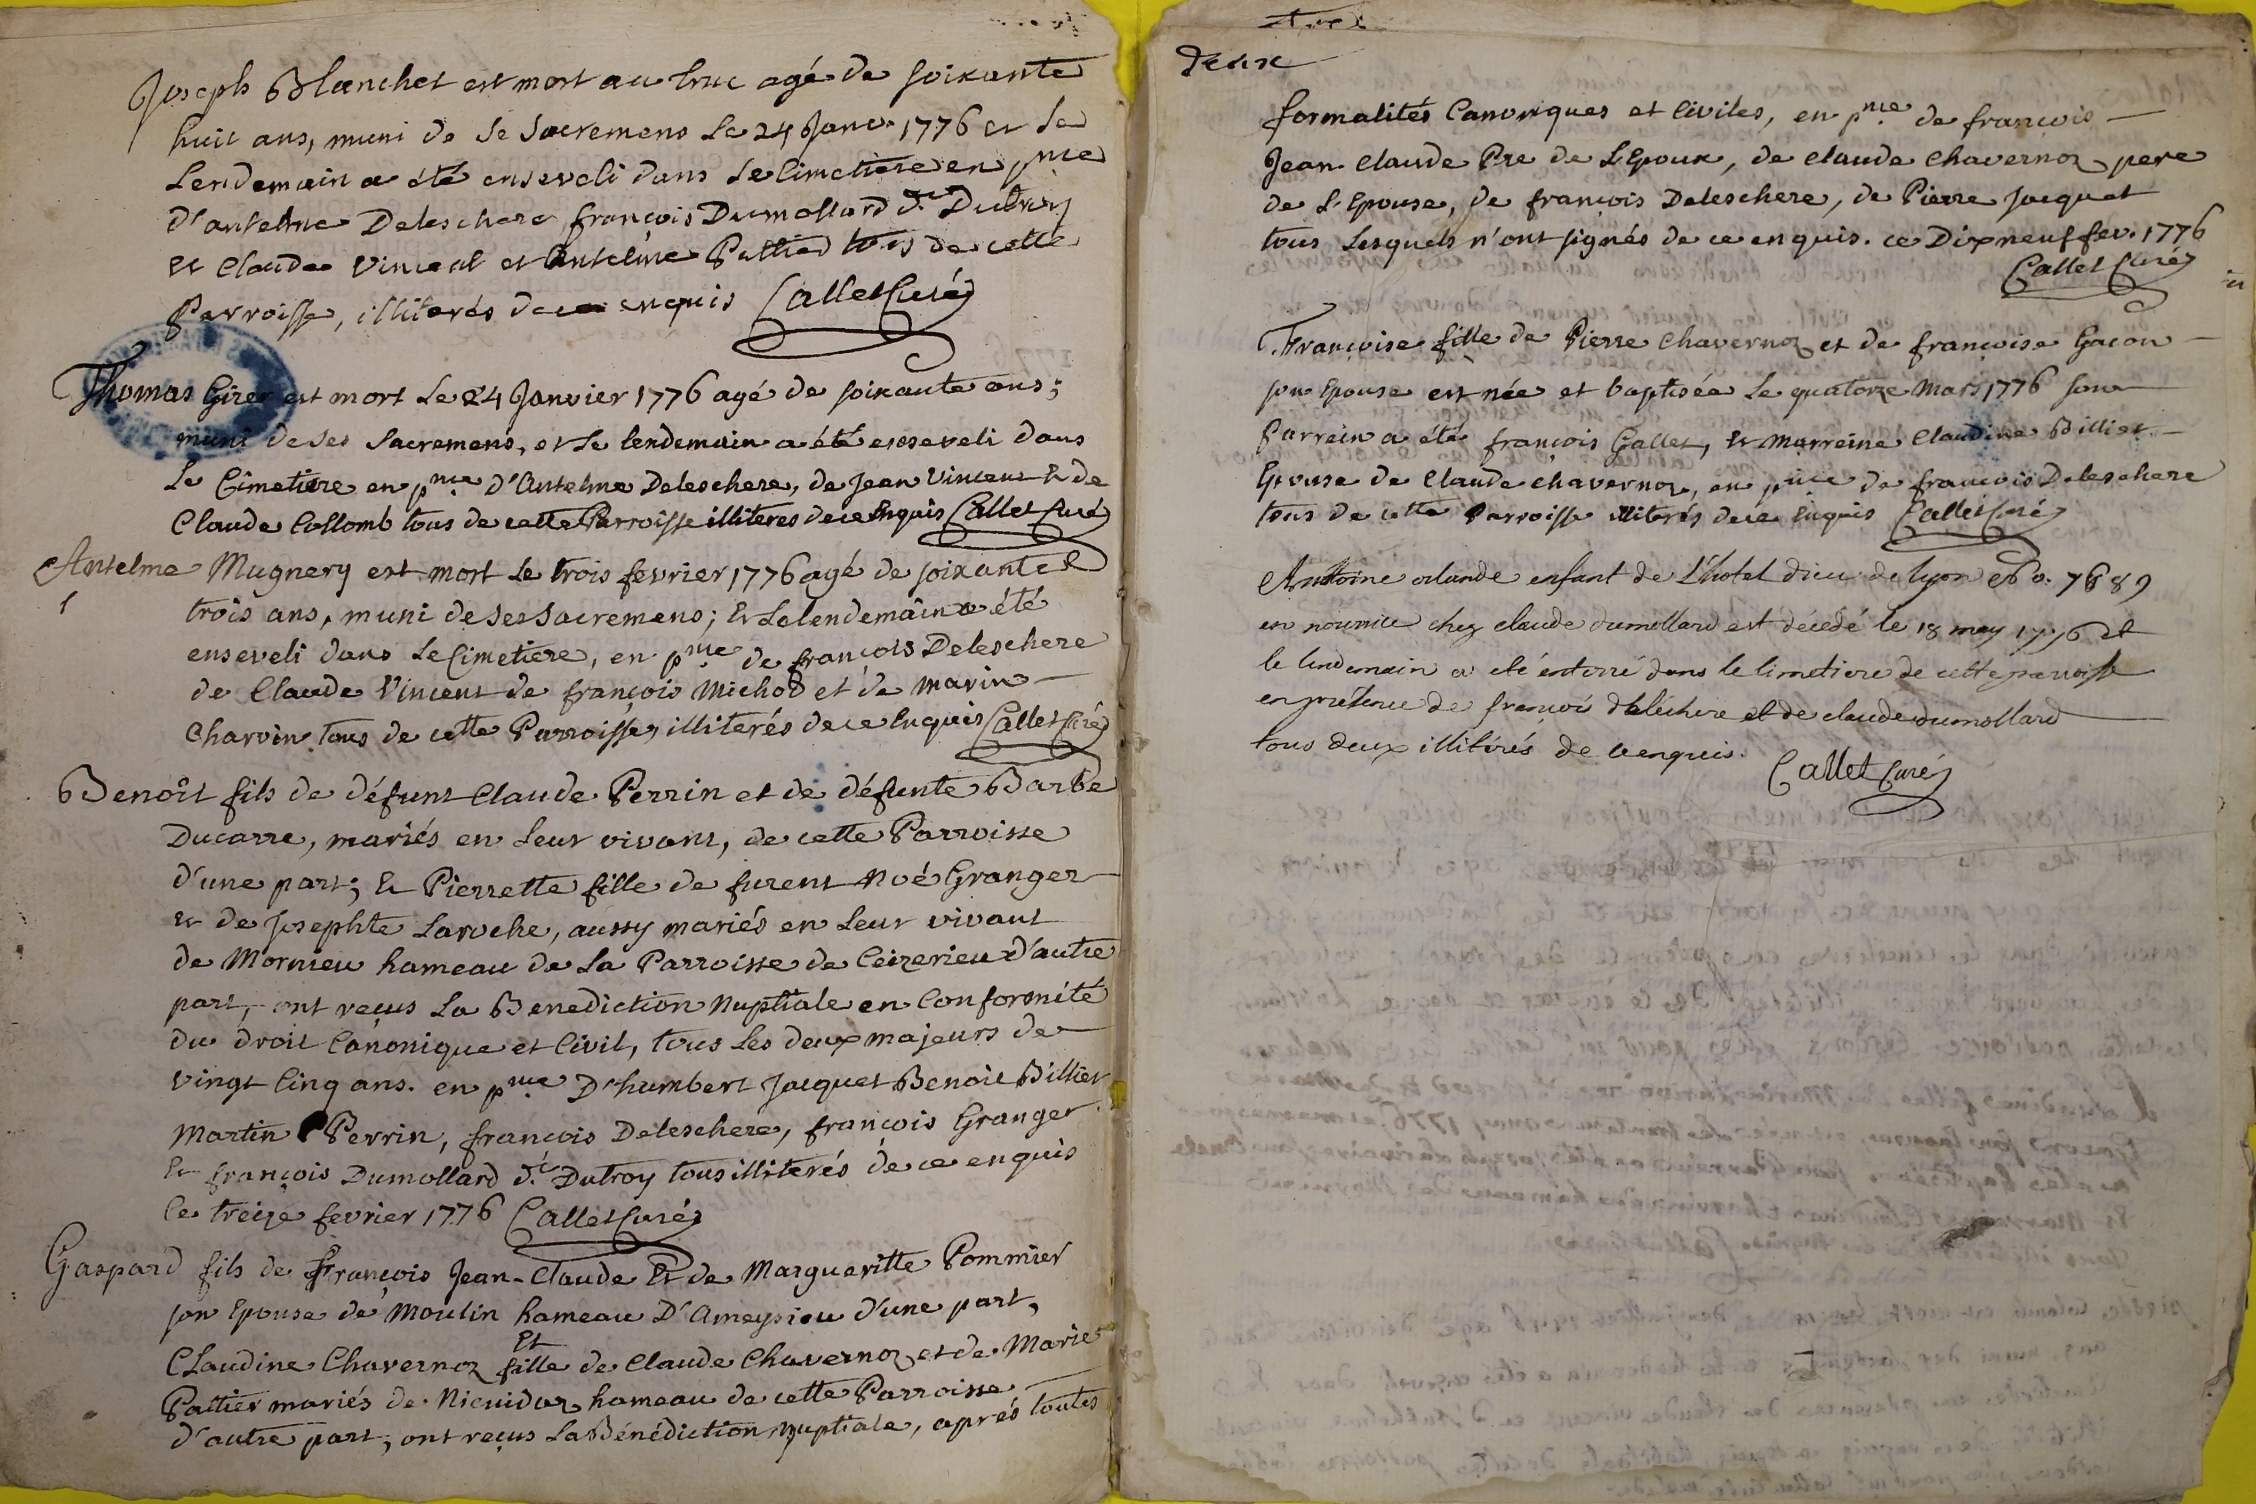 Joseph Blanchet est mort au truc agé de soixante
huit ans, muni de se sacremens le 24 Janv. 1776 et le
Lendemain a été enseveli dans le Cimetiere en pnce
d'antelme Deleschere françois Dumollard dt Dutroy
et Claude Vincent et Antelme Pattier tous de cette
Parroisse, illiterés de ce enquis Callet Curé
Thomas Girer est mort le 24 Janvier 1776 agé de soixante ans;
muni de ses Sacremens, et le lendemain a été enseveli dans
Le Cimetiere en pnce d'Antelme Deleschere, de Jean Vincent & de
Claude Collomb tous de cette Parroisse illiteres de ce Enquis Callet Curé
Antelme Mugnery est mort le trois fevrier 1776 agé de soixante &
trois ans, muni de ses sacremens; & Le lendemain a été
enseveli dans le Cimetiere, en pnce de françois Deleschere
de Claude Vincent de françois Michod et de marin
Charvin tous de cette Parroisse, illiterés de ce Enquis Callet Curé
Benoît fils de défunt Claude Perrin et de défunte Barbe
Ducarre, mariés en Leur vivant, de cette Parroisse
d'une part; & Pierrette fille de furent Noé Granger
et de Josephte Laroche, aussy mariés en Leur vivant
de Mornieu hameau de La Parroisse de Ceizerieu d'autre
part, ont reçus La Benediction Nuptiale en Conformité
du droit Canonique et Civil, tous Les deux majeurs de
vingt Cinq ans. en pnce D'humbert Jacquet Benoit Billiet
Martin Perrin, françois Deleschere, françois Granger
& françois Dumollard dt Dutroy tous illiterés de ce enquis
Ce treize fevrier 1776 Callet Curé
Gaspard fils de François Jean-Claude & de Margueritte Pommier
son Epouse de Moulin hameau D'Ameysieu d'une part,
Et
Claudine Chavernoz fille de Claude Chavernoz et de Marie
Pattier mariés de Nicuidoz hameau de cette Parroisse
d'autre part; ont reçus La Bénédiction Nuptiale, après toutes
deux
formalités Canoniques et Civiles, en pnce de françois
Jean Claude Pre de L'Epoux, de Claude Chavernoz pere
de L'Epouse, de françois Deleschere, de Pierre Jacquet
tous Lesquels n'ont signés de ce enquis. ce Dix neuf fev. 1776
Callet Curé
Françoise fille de Pierre Chavernoz et de françoise Gacon
son Epouse est née et baptisée Le quatorze Mars 1776 son
Parrein a été françois Gallet, & Marreine Claudine Billiet
Epouse de Claude Chavernoz, en pnce de françois Deleschere
tous de cette Parroisse illiterés de ce Enquis Callet Curé
Antoine orlande enfant de L'hotel dieu de lyon No. 7689
en nourrice chez claude dumollard est décédé le 18 may 1776 et
le lendemain a été enterré dans le Cimetiere de cette parroisse
en présence de françois deléchere et de claude dumollard
tous deux illitérés de ce enquis. Callet Curé